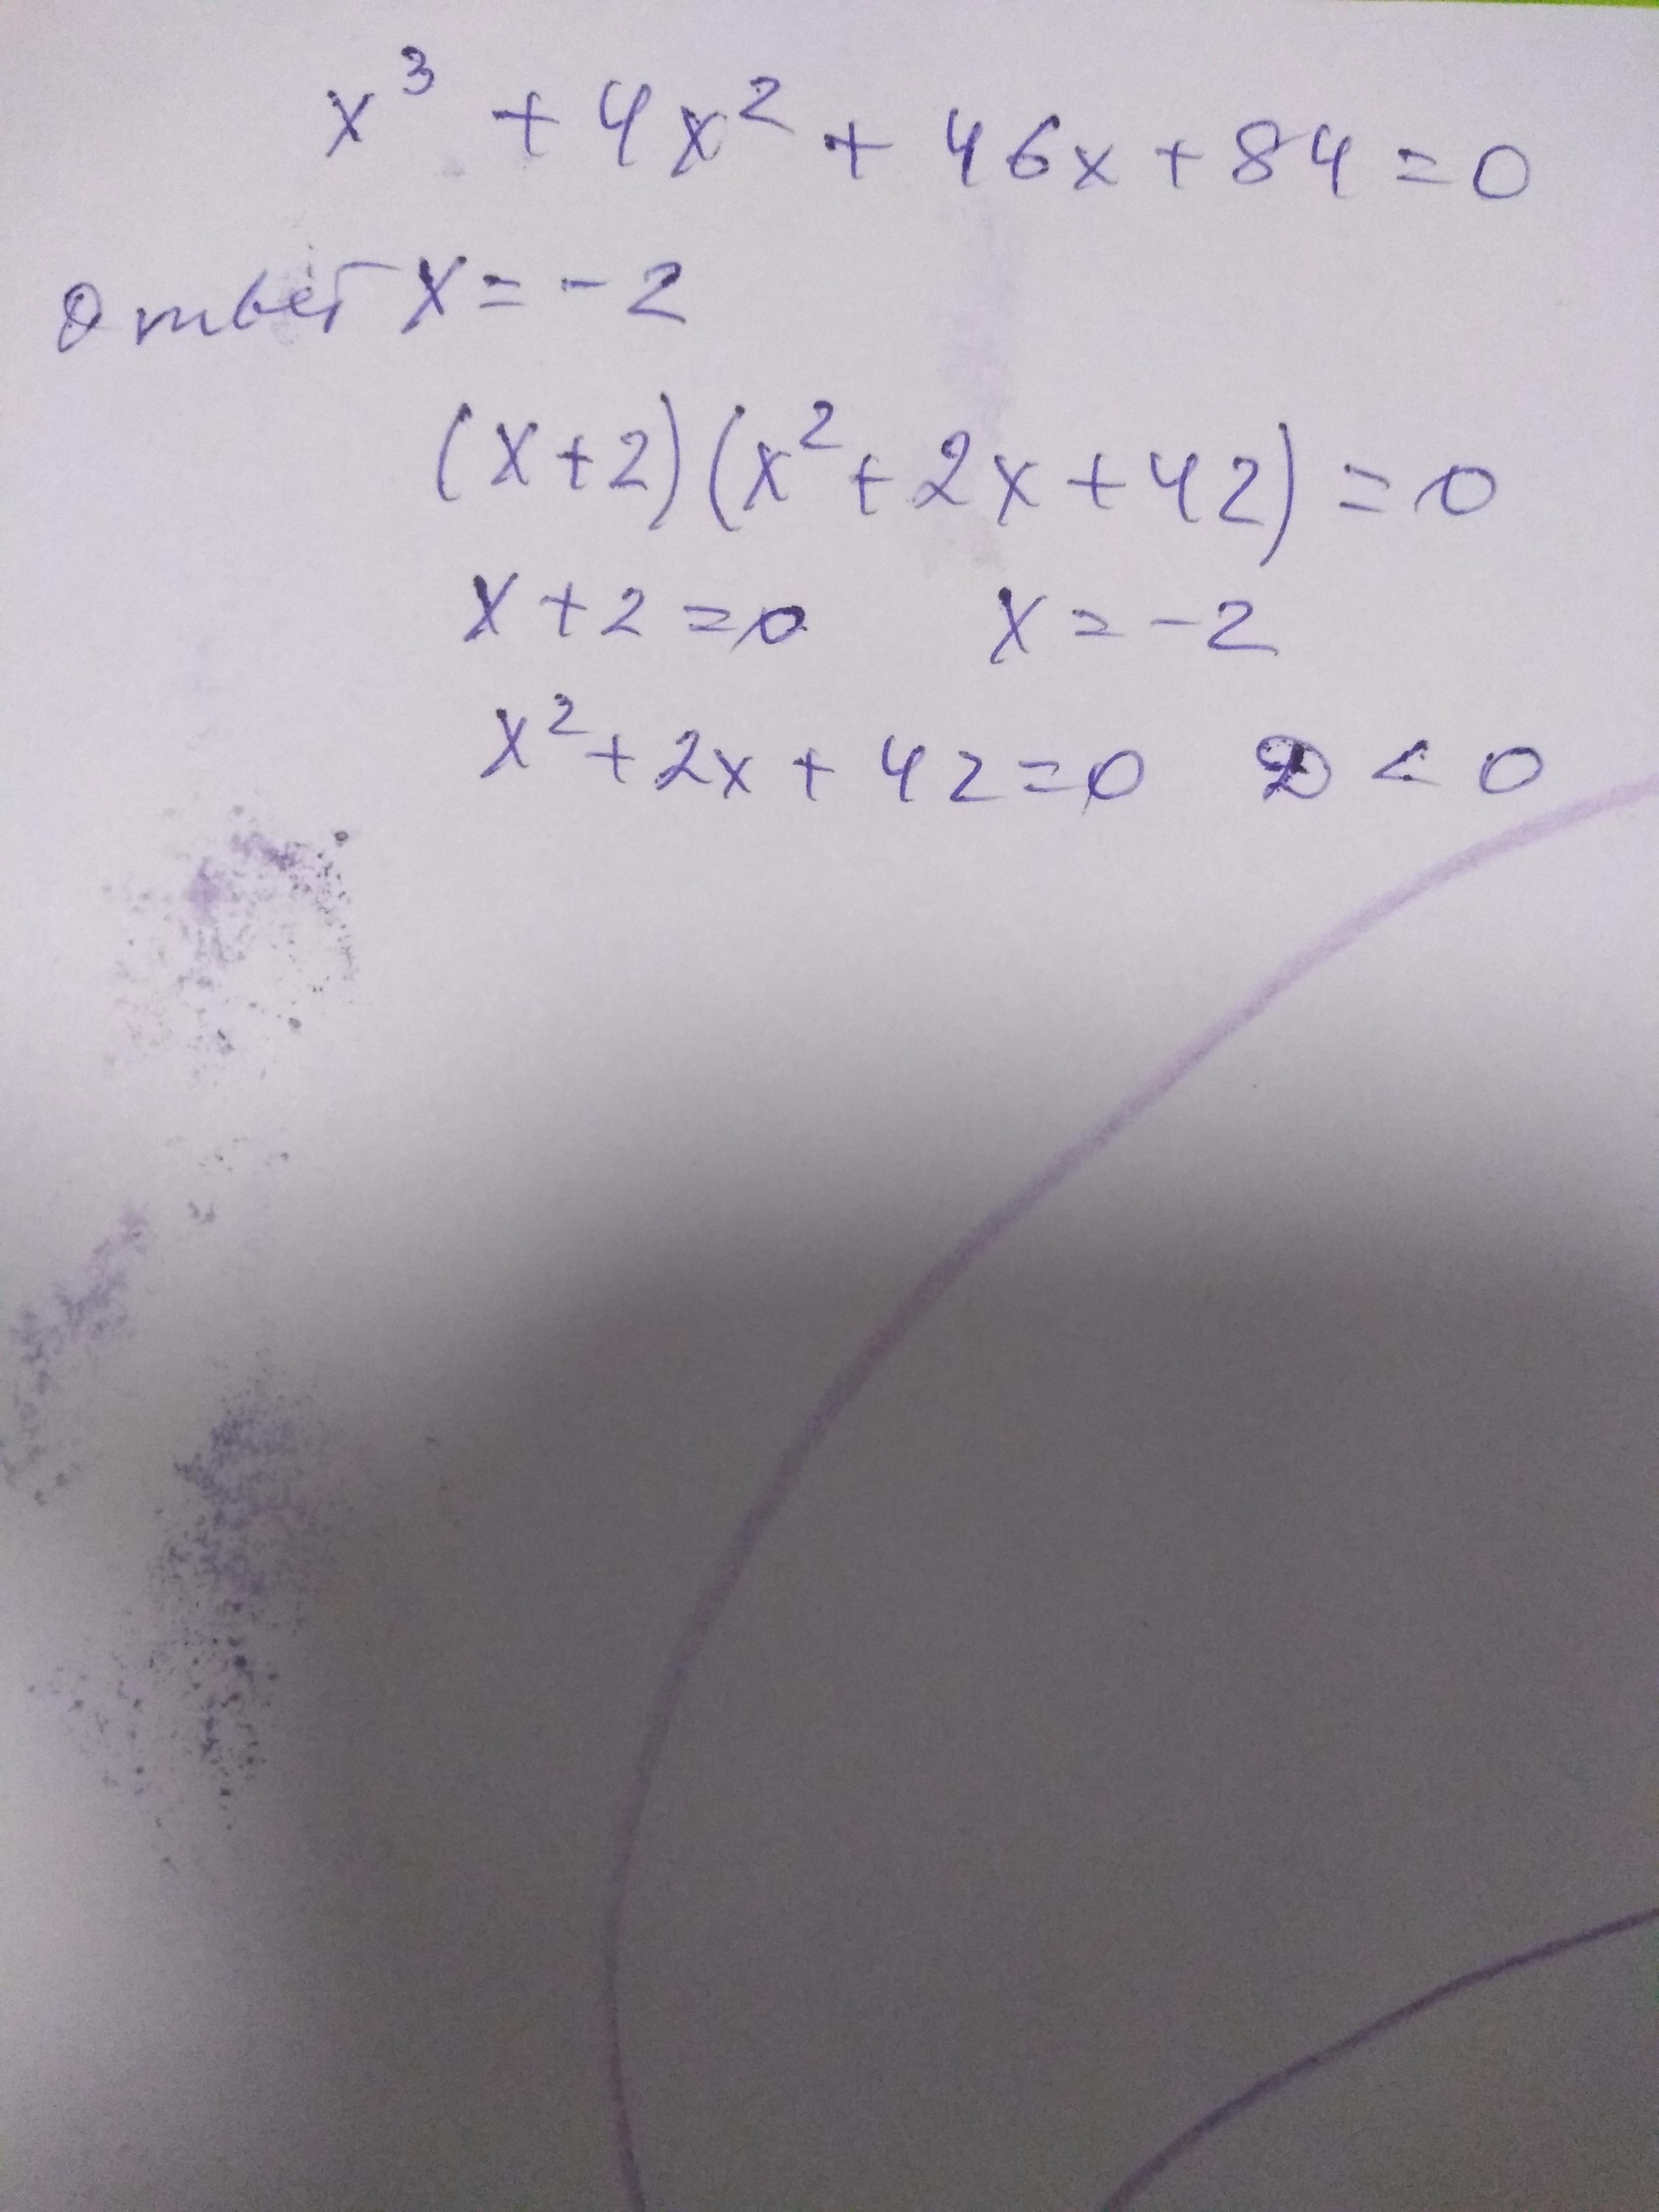 x³ + 4x² + 46x + 84 = 0
Ответ x = -2
(x+2)(x² + 2x + 42) = 0
x + 2 = 0 x = -2
x² + 2x + 42 = 0 D < 0